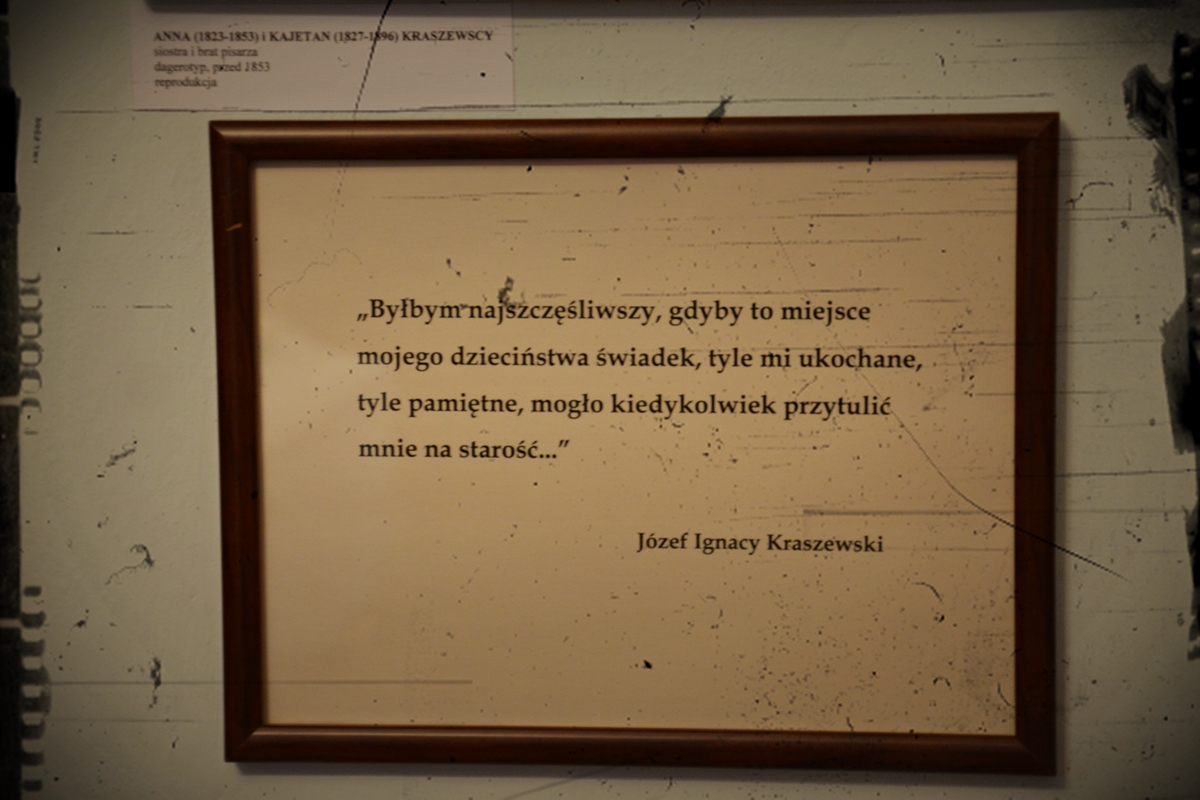 ANNA (1823-1853) i KAJETAN (1827-1896) KRASZEWSCY
siostra i brat pisarza
dagerotyp, przed 1853
reprodukcja
„Byłbym najszczęśliwszy, gdyby to miejsce
mojego dzieciństwa świadek, tyle mi ukochane,
tyle pamiętne, mogło kiedykolwiek przytulić
mnie na starość...”
Józef Ignacy Kraszewski